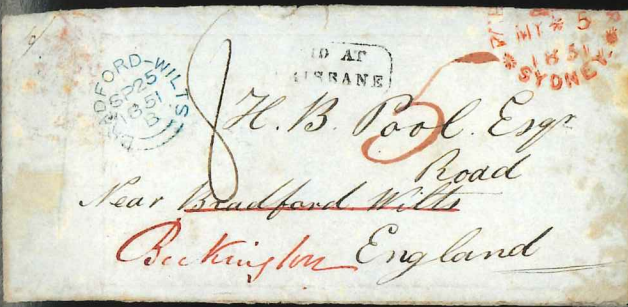 BRADFORD-WILTS
SP 25
1851
B
8
ID AT
ISBANE
5
MY 5
1851
SYDNEY
H. B. Pool. Esqr
Road
Near Bradford Wilts
Beckington England